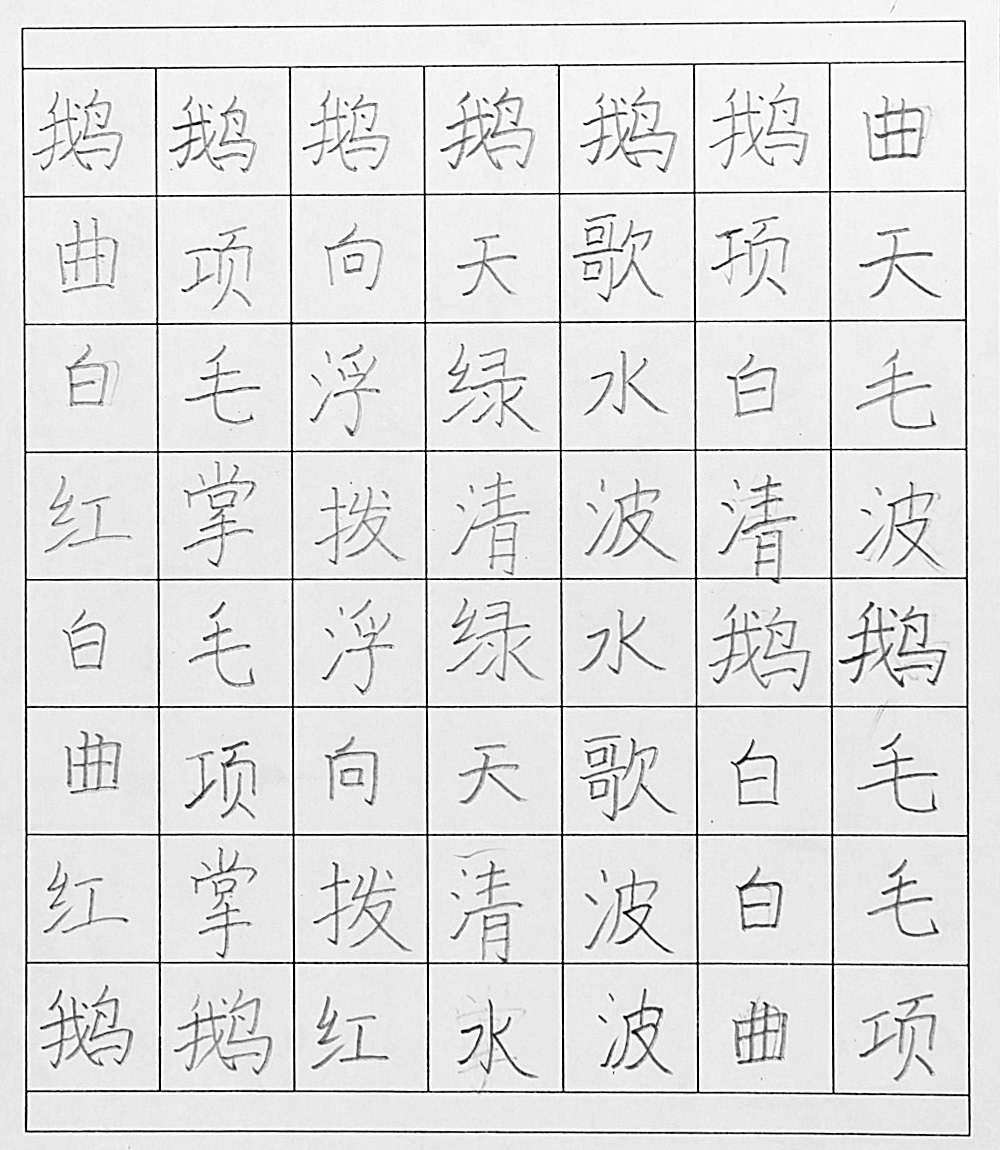 鹅鹅鹅鹅鹅鹅曲
曲项向天歌项天
白毛浮绿水白毛
红掌拨清波清波
白毛浮绿水鹅鹅
曲项向天歌白毛
红掌拨清波白毛
鹅鹅红水波曲项